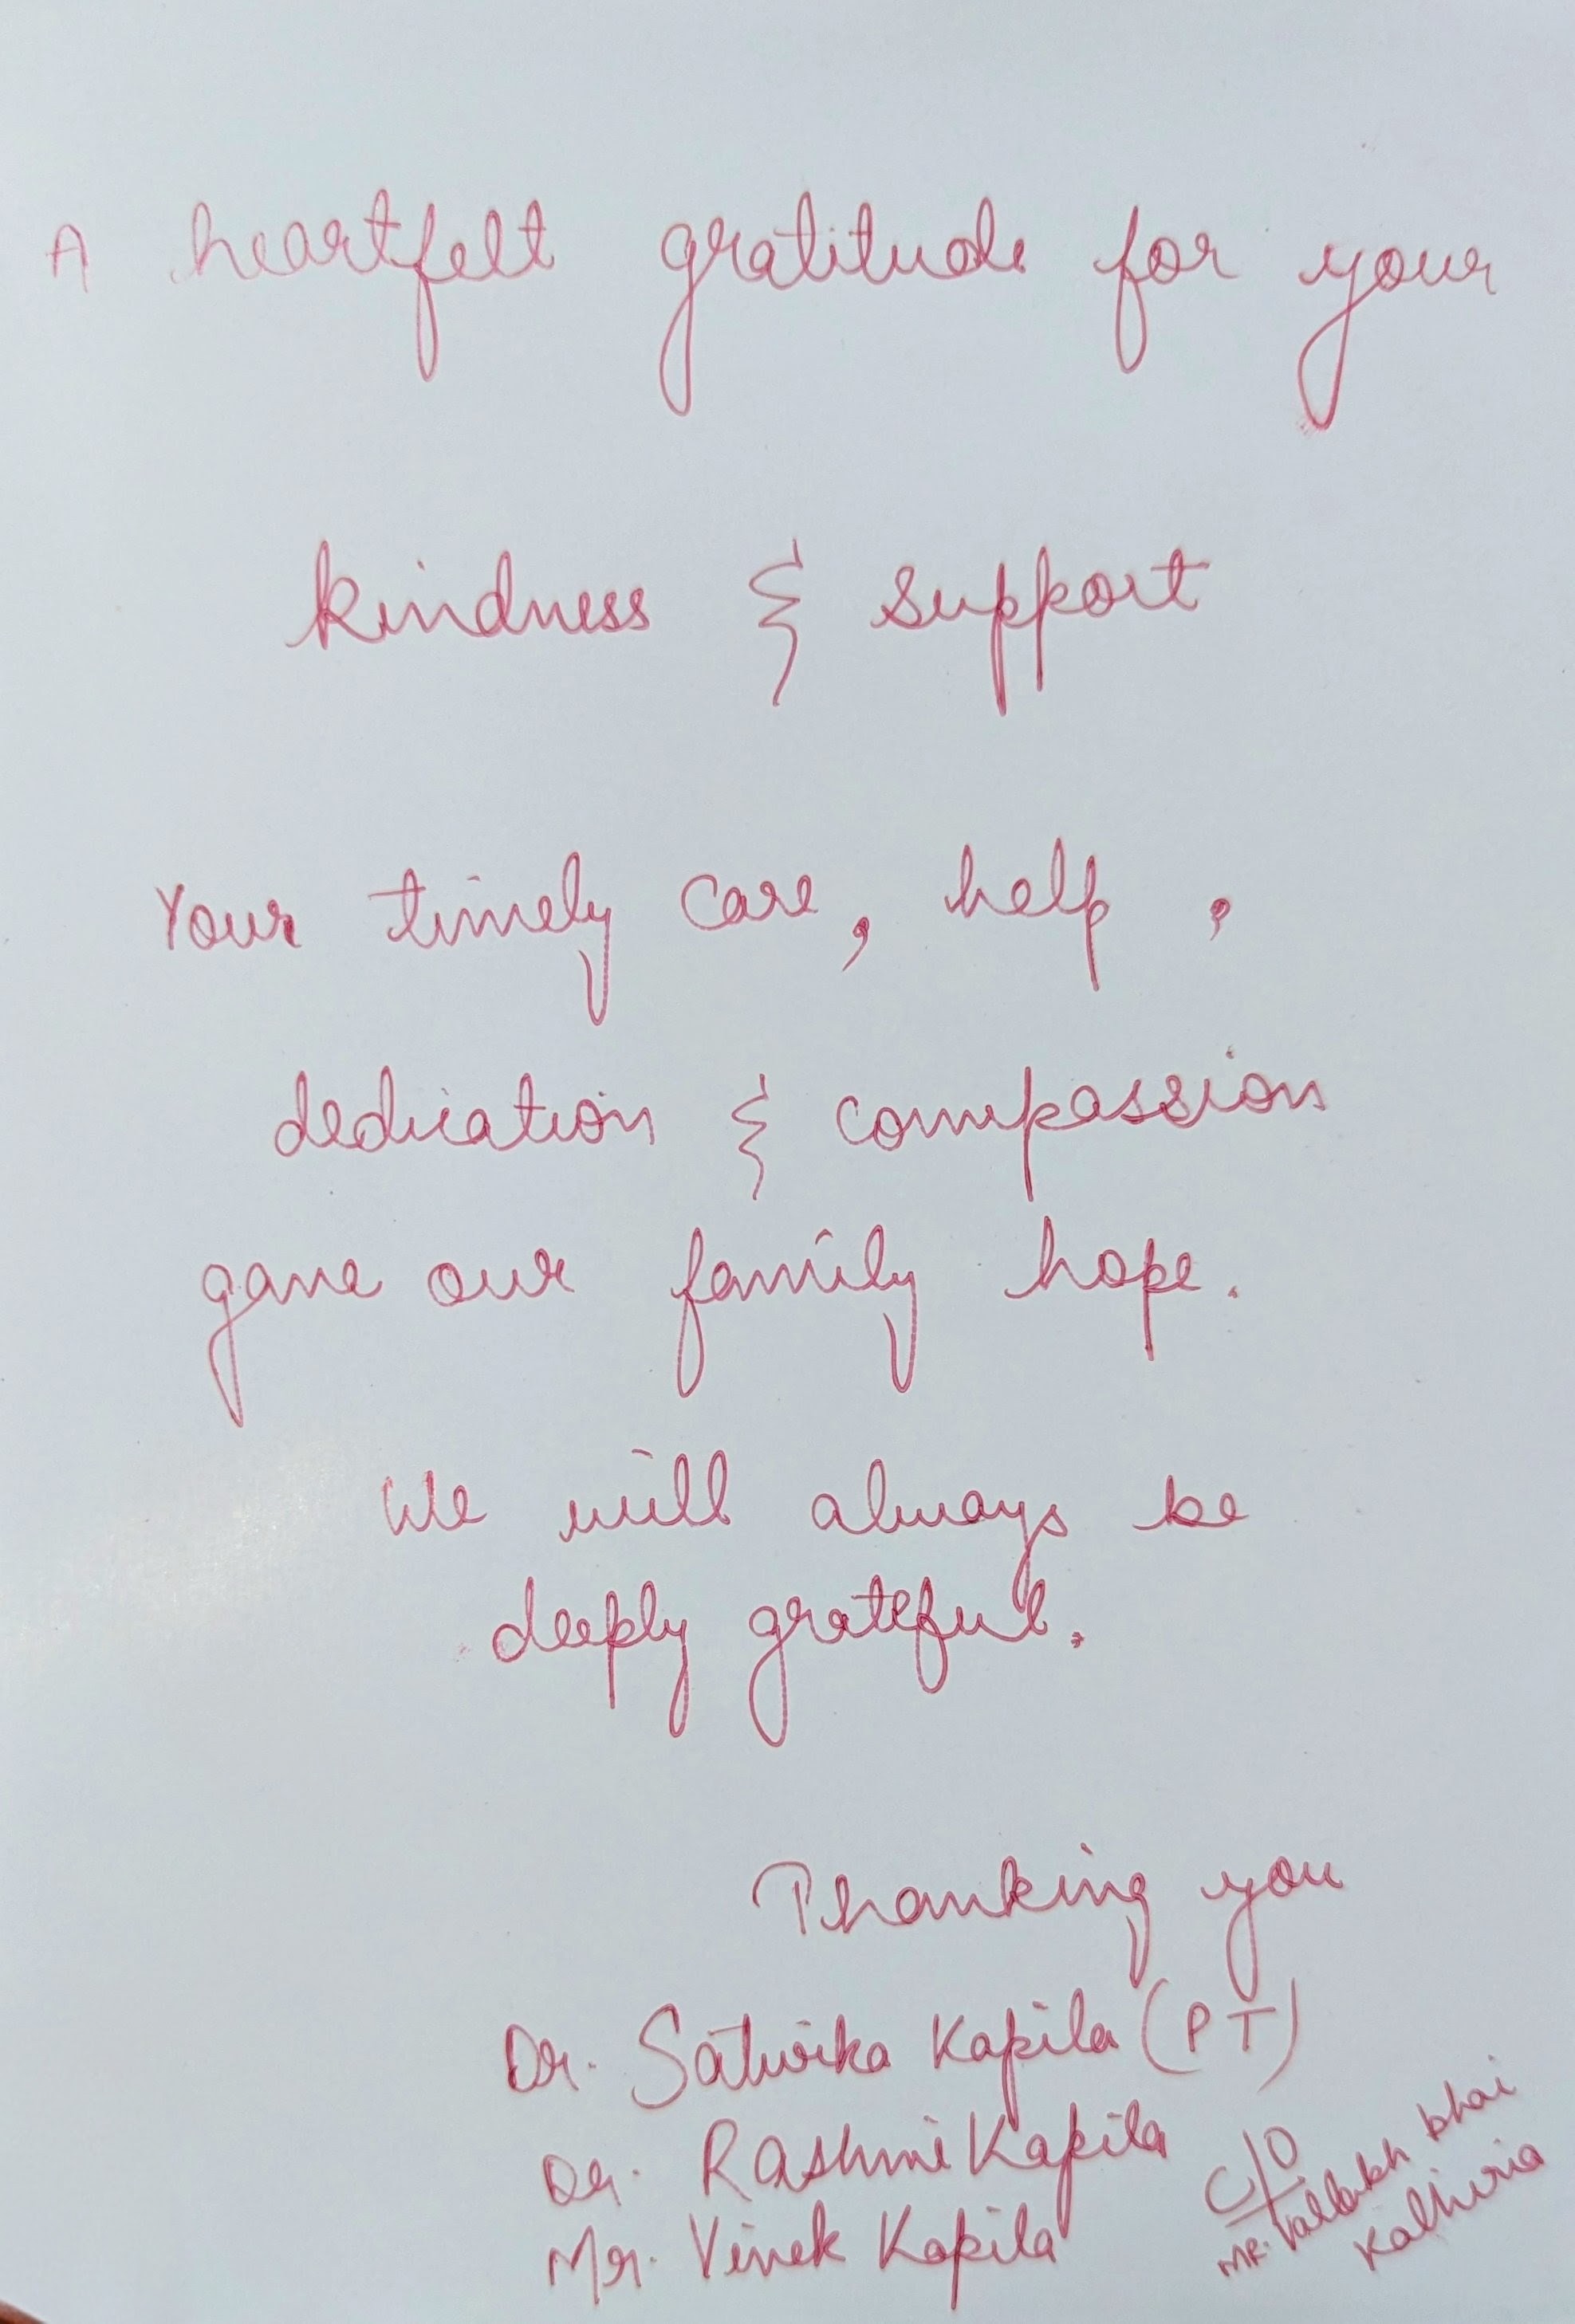 A heartfelt gratitude for your
kindness & support
Your timely care, help,
dedication & compassion
gave our family hope.
We will always be
deeply grateful.
Thanking you
Dr. Satvika Kapila (PT)
Dr. Rashmi Kapila
Mr. Vivek Kapila
C/O
Mr. bhai